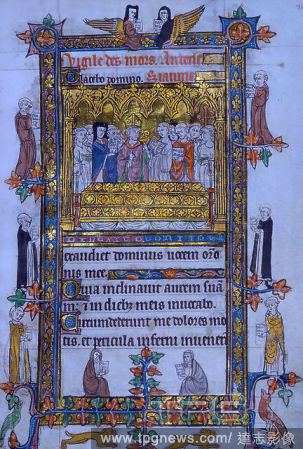 Vigile des mois. Antenne
Placebo domino. Psaume
exaudiet dominus vocem oro
nis mee.
Quia inclinauit aurem suam
m in dieb; meis inuocabo.
Circumdederunt me dolores mo
tis. et pericula inferni inuener
www.tpgnews.com/ 達志影像